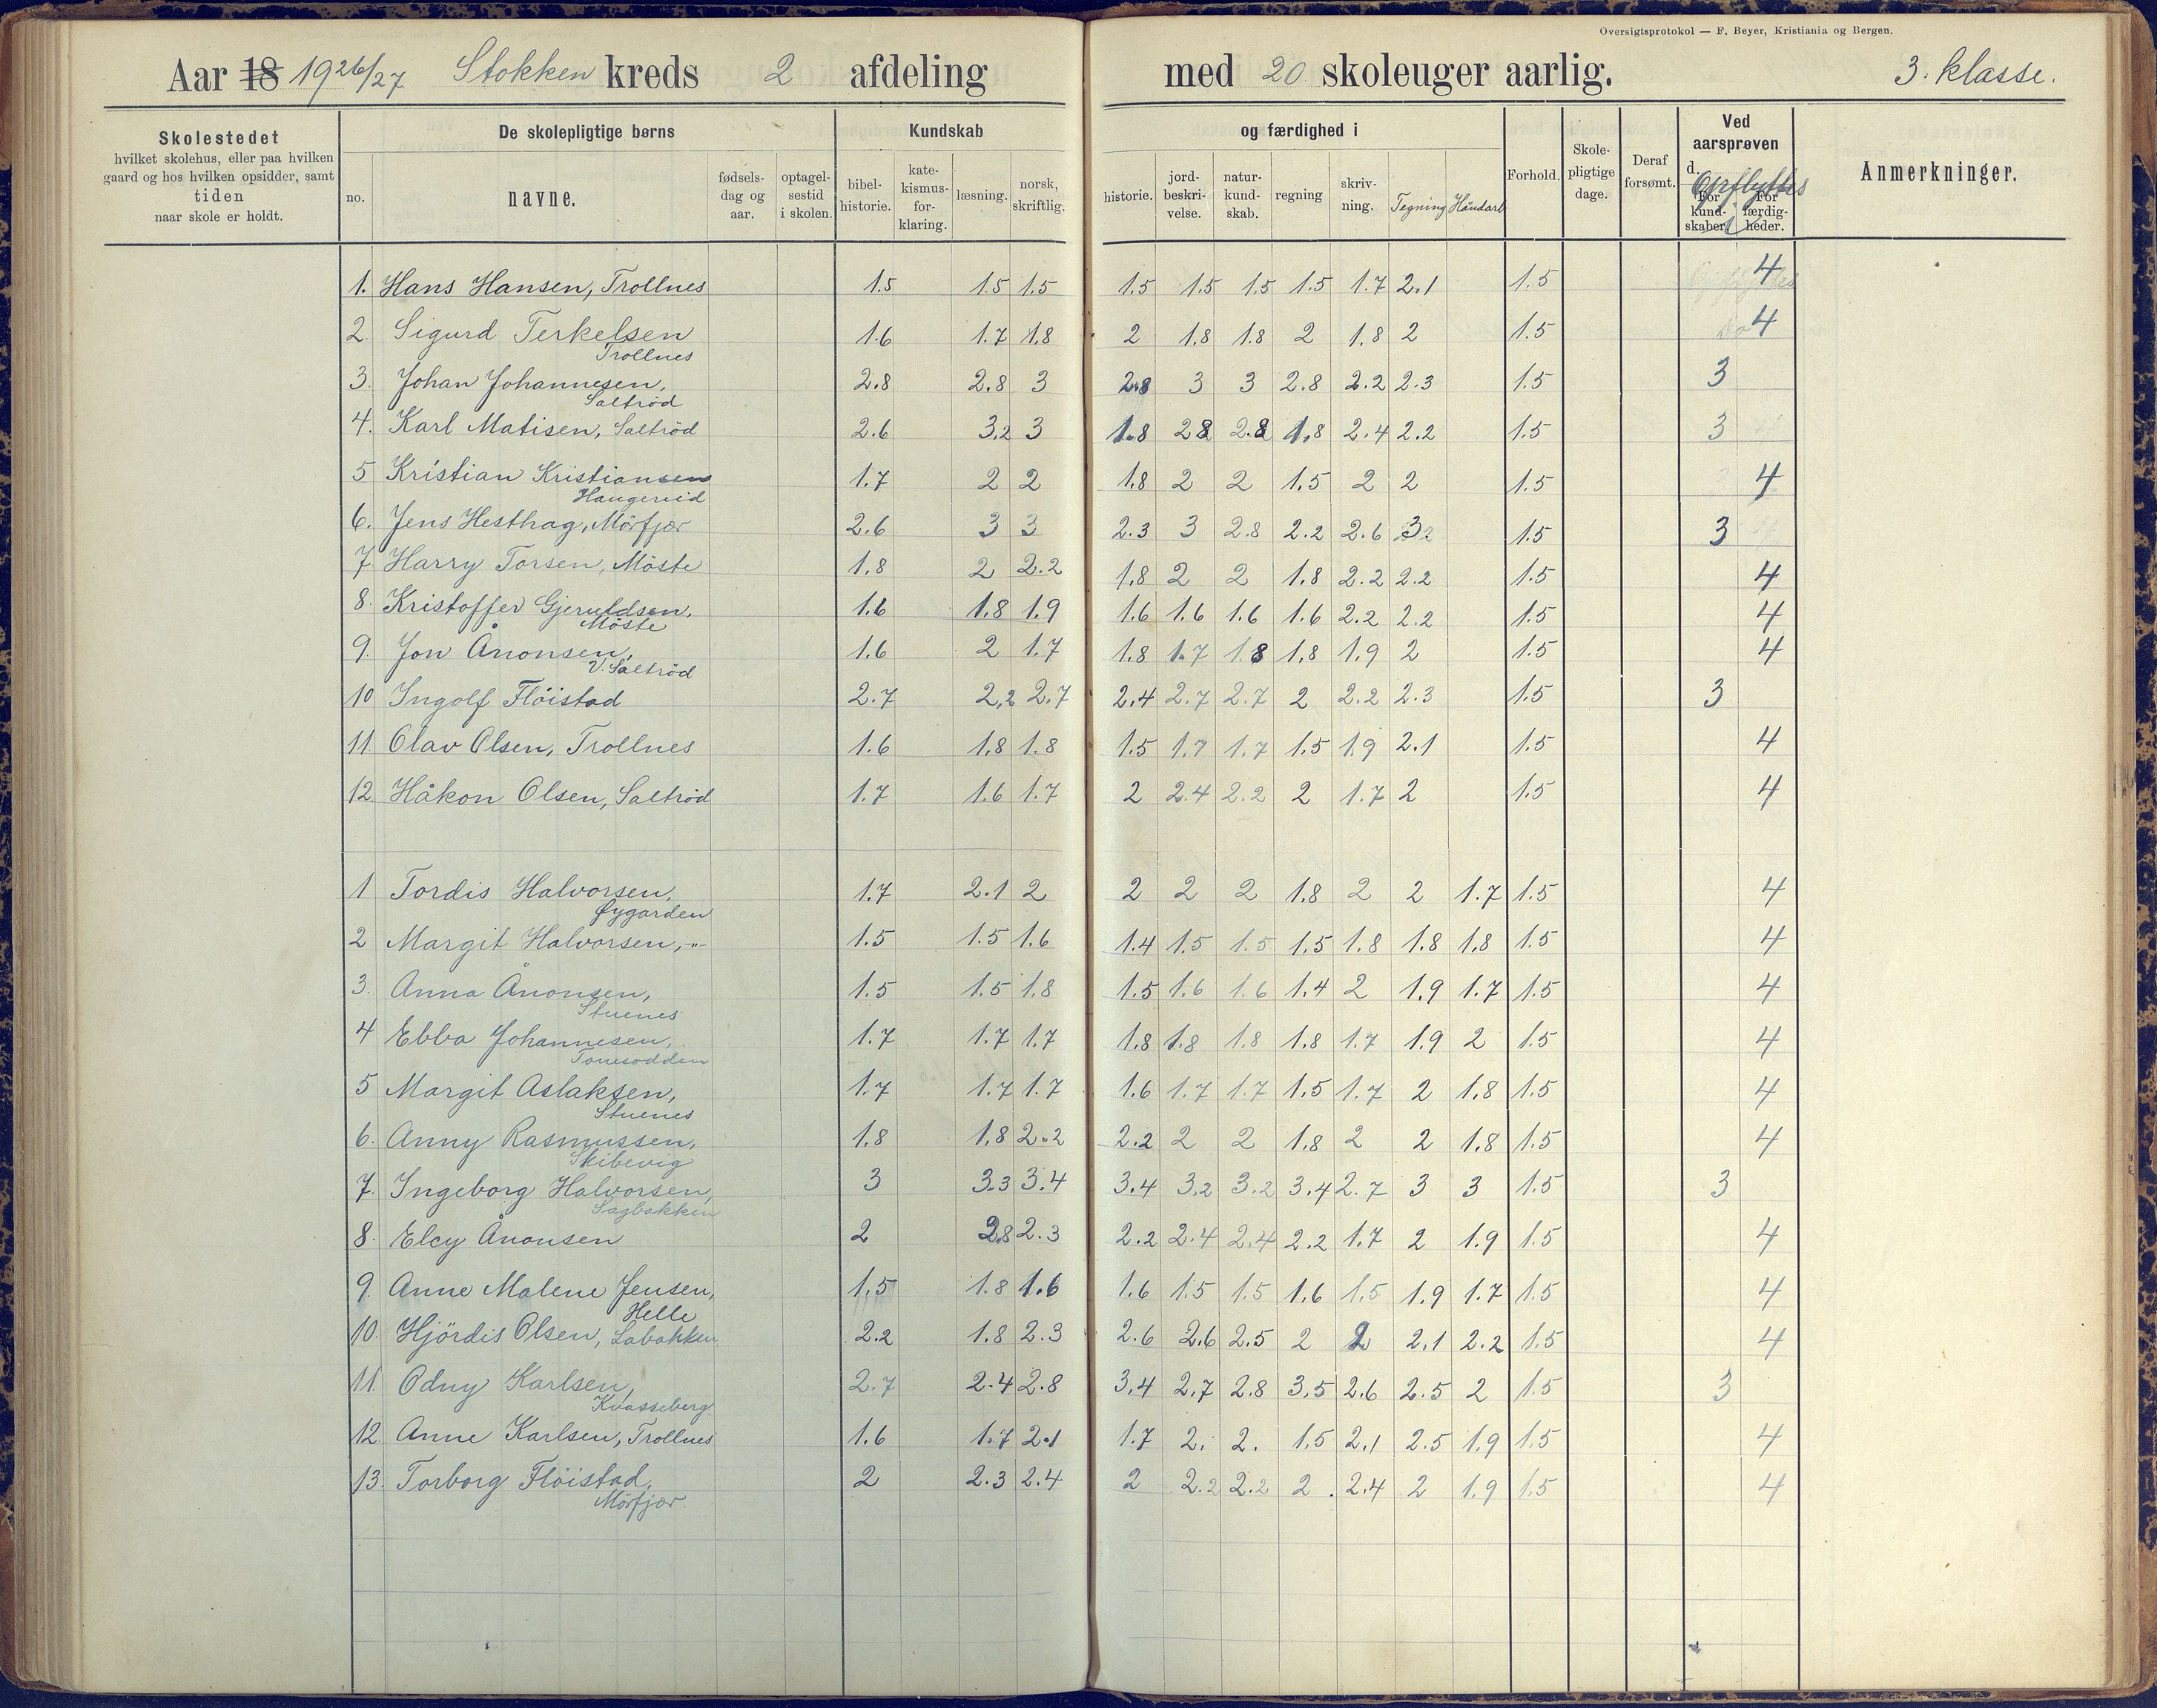 Oversigtsprotokol — F. Beyer, Kristiania og Bergen.
Aar 18 1926/27 Stokken kreds 2 afdeling med 20 skoleuger aarlig. 3. klasse.
Skolestedet hvilket skolehus, eller paa hvilken gaard og hos hvilken opsidder, samt tiden naar skole er holdt.
De skolepligtige børns
no. navne. fødsels-dag og aar. optagel-sestid i skolen.
Kundskab og færdighed i
bibel-historie. kate-kismus-for-klaring. læsning. norsk, skriftlig. historie. jord-beskri-velse. natur-kund-skab. regning skriv-ning. Tegning Håndarb
Forhold. Skole-pligtige dage. Deraf forsømt.
Ved aarsprøven d. Opflyttes i
For kund-skaber. For færdig-heder.
Anmerkninger.
1. Hans Hansen, Trollnes 1.5 1.5 1.5 1.5 1.5 1.5 1.5 1.7 2.1 1.5 4
2. Sigurd Terkelsen 1.6 1.7 1.8 2 1.8 1.8 2 1.8 2 1.5 4
Trollnes
3. Johan Johannesen, 2.8 2.8 3 2.8 3 3 2.8 2.2 2.3 1.5 3
Saltröd
4. Karl Matisen, Saltröd 2.6 3.2 3 1.8 2.8 2.8 1.8 2.4 2.2 1.5 3
5 Kristian Kristiansen 1.7 2 2 1.8 2 2 1.5 2 2 1.5 4
Haugerud
6. Jens Hesthag, Mörfjær 2.6 3 3 2.3 3 2.8 2.2 2.6 3 1.5 3
7 Harry Torsen, Möste 1.8 2 2.2 1.8 2 2 1.8 2.2 2.2 1.5 4
8. Kristoffer Gjeruldsen, 1.6 1.8 1.9 1.6 1.6 1.6 1.6 2.2 2.2 1.5 4
Möste
9. Jon Ånonsen, 1.6 2 1.7 1.8 1.7 1.8 1.8 1.9 2 1.5 4
V. Saltröd
10 Ingolf Flöistad 2.7 2.2 2.7 2.4 2.7 2.7 2 2.2 2.3 1.5 3
11 Olav Olsen, Trollnes 1.6 1.8 1.8 1.5 1.7 1.7 1.5 1.9 2.1 1.5 4
12. Håkon Olsen, Saltröd 1.7 1.6 1.7 2 2.4 2.2 2 1.7 2 1.5 4
1 Tordis Halvorsen, 1.7 2.1 2 2 2 2 1.8 2 2 1.7 1.5 4
Øygarden
2 Margit Halvorsen, -"- 1.5 1.5 1.6 1.4 1.5 1.5 1.5 1.8 1.8 1.8 1.5 4
3. Anna Ånonsen, 1.5 1.5 1.8 1.5 1.6 1.6 1.4 2 1.9 1.7 1.5 4
Stuenes
4 Ebba Johannesen, 1.7 1.7 1.7 1.8 1.8 1.8 1.8 1.7 1.9 2 1.5 4
Tonesodden
5 Margit Aslaksen, 1.7 1.7 1.7 1.6 1.7 1.7 1.5 1.7 2 1.8 1.5 4
Stuenes
6. Anny Rasmussen, 1.8 1.8 2.2 2.2 2 2 1.8 2 2 1.8 1.5 4
Skibevig
7. Ingeborg Halvorsen, 3 3.3 3.4 3.4 3.2 3.2 3.4 2.7 3 3 1.5 3
Sagbakken
8. Elcy Ånonsen 2 2.8 2.3 2.2 2.4 2.4 2.2 1.7 2 1.9 1.5 4
9. Anne Malene Jensen, 1.5 1.8 1.6 1.6 1.5 1.5 1.6 1.5 1.9 1.7 1.5 4
Helle
10. Hjördis Olsen, Labakken 2.2 1.8 2.3 2.6 2.6 2.5 2 2 2.1 2.2 1.5 4
11. Odny Karlsen, 2.7 2.4 2.8 3.4 2.7 2.8 3.5 2.6 2.5 2 1.5 3
Kvasseberg
12. Anne Karlsen, Trollnes 1.6 1.7 2.1 1.7 2. 2. 1.5 2.1 2.5 1.9 1.5 4
13. Torborg Flöistad, 2 2.3 2.4 2 2.2 2.2 2. 2.4 2 1.9 1.5 4
Mörfjær